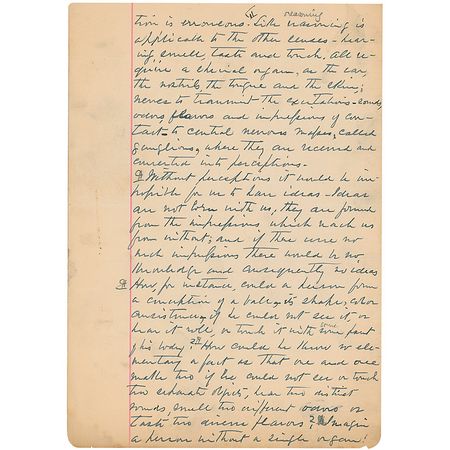 reasoning
tion is erroneous. Like reasoning is
applicable to the other senses - hear-
ing, smell, taste and touch, all re-
quire a special organ, as the ear,
the nostrils, the tongue and the skin;
nerves to transmit the excitations - sounds,
odors, flavors and impressions of con-
tact - to central nervous masses, called
ganglions, where they are received and
converted into perceptions.
Without perceptions it would be im-
possible for us to have ideas. Ideas
are not born with us, they are formed
from the impressions which reach us
from without; and if there were no
such impressions there would be no
knowledge and consequently no ideas
How, for instance, could a person form
a conception of a ball, its shape, color
consistency, if he could not see it or
hear it roll, or touch it with some part
of his body? How could he know so ele-
mentary a fact as that one and one
make two if he could not see or touch
two separate objects, hear two distinct
sounds, smell two different odors or
taste two diverse flavors? Imagine
a person without a single organ!